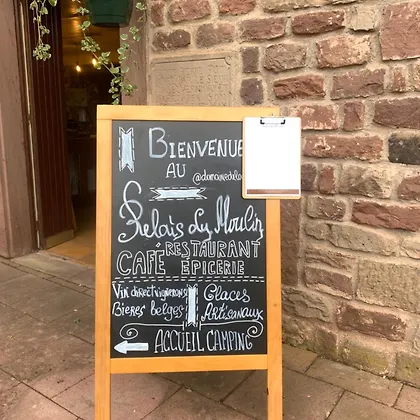 BIENVENUE
AU
Relais du Moulin
CAFÉ RESTAURANT
EPICERIE
Vin direct vignerons
Bières belges
Glaces
Artisanaux
ACCUEIL CAMPING